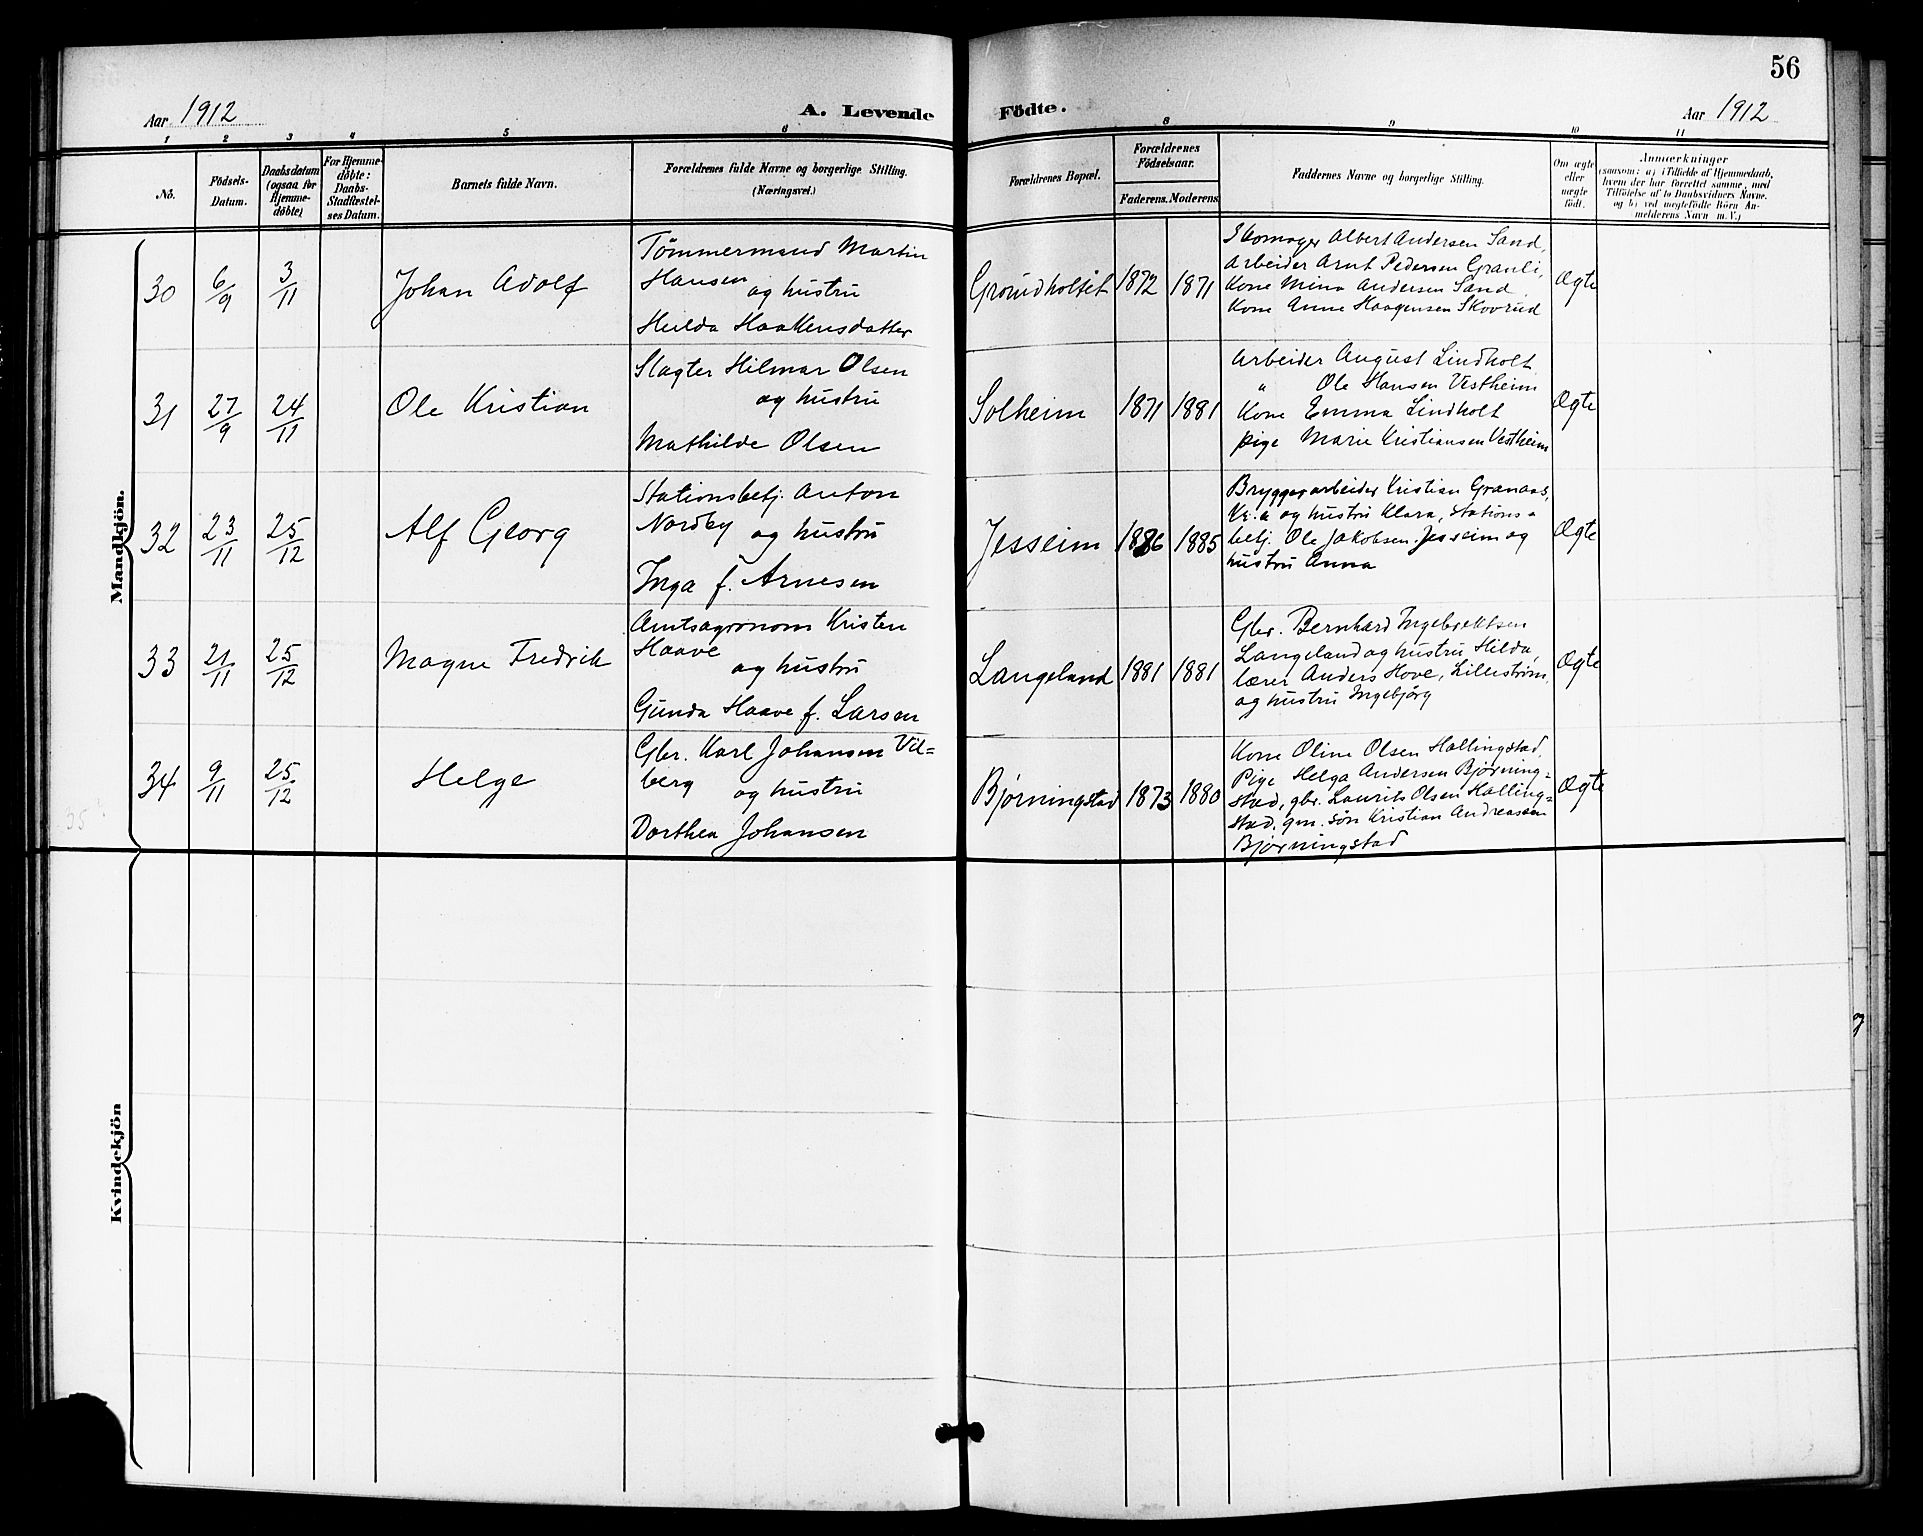 56
Aar 1912
A. Levende Födte.
Aar 1912
1 2 3 4 5 6 8 9 10 11
No.
Födsels-
Datum.
Daabsdatum
(ogsaa for
Hjemme-
døbte)
For Hjemme-
døbte:
Daabs-
Stadfæstel-
ses Datum.
Barnets fulde Navn.
Forældrenes fulde Navne og borgerlige Stilling.
(Næringsvei.)
Forældrenes Bopæl.
Forældrenes
Fødselsaar.
Faderens. Moderens.
Faddernes Navne og borgerlige Stilling.
Om ægte
eller
uægte
født.
Anmærkninger
(saasom: a) i Tilfælde af Hjemmedaab,
hvem der har forrettet samme, med
Tilføielse af to Daabsvidners Navne.
og b) ved uægtefødte Börn An-
melderens Navn m. V.)
Mandkjön.
30
6/9
3/11
Johan Adolf
Tømmermand Martin
Hansen og hustru
Hulda Haakensdatter
Grøndholtet
1872
1871
Skomager Albert Andersen Sand,
Arbeider Arnt Pedersen Granli,
Kone Mina Andersen Sand
Kone Anne Haagensen Skovrud
Ægte
31
27/9
24/11
Ole Kristian
Slagter Hilmar Olsen
og hustru
Mathilde Olsen
Solheim
1871
1881
Arbeider August Lindholt
" Ole Hansen Vestheim
Kone Emma Lindholt
pige Marie Kristiansen Vestheim
Ægte
32
23/11
25/12
Alf Georg
Stationsbetj. Anton
Nordby og hustru
Inga f. Arnesen
Jesseim
1886
1885
Bryggeriarbeider Kristian Granaas,
Kr.a og hustru Klara, stations-
betj. Ole Jakobsen, Jesseim og
hustru Anna
Ægte
33
21/11
25/12
Magne Fredrik
Amtsagronom Kristen
Haave
og hustru
Gunda Haave f. Larsen
Langeland
1881
1881
Gbr. Bernhard Ingebrektsen
Langeland og hustru Hilda,
lærer Anders Hove, Lillestrøm,
og hustru Ingebjörg
Ægte
34
9/11
25/12
Helge
Gbr. Karl Johansen Vil=
berg og hustru
Dorthea Johansen
Bjørningstad
1873
1880
Kone Oline Olsen Hallingstad,
Pige Helga Andersen Bjørning=
stad, gbr. Laurits Olsen Halling=
stad, gm. søn Kristian Andreassen
Bjørningstad
Ægte
35?
Kvindekjön
og